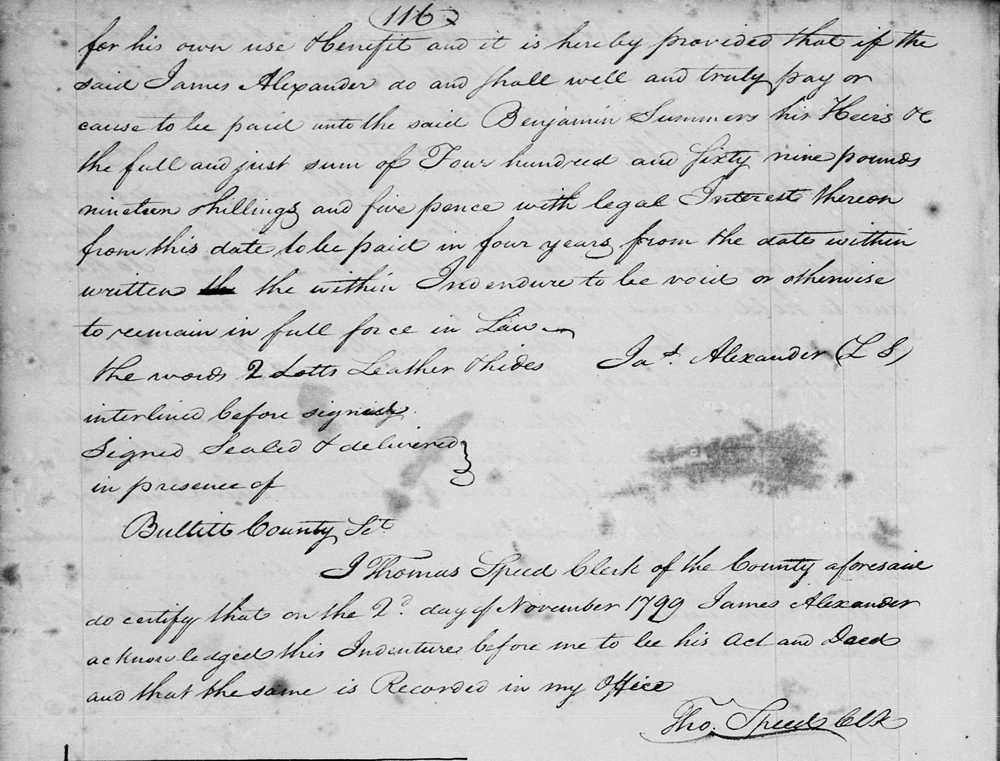 116
for his own use & benefit and it is hereby provided that if the
said James Alexander do and shall well and truly pay or
cause to be paid unto the said Benjamin Summers his Heirs &c
the full and just sum of Four hundred and sixty nine pounds
nineteen shillings and five pence with legal Interest thereon
from this date to be paid in four years from the date within
written the within Indendure to be void or otherwise
to remain in full force in Law
the words 2 Lotts Leather & hides Jas. Alexander (L S)
interlined before signing
Signed Sealed & delivered
in presence of
Bullitt County Sct
I Thomas Speed Clerk of the County aforesaid
do certify that on the 2d day of November 1799 James Alexander
acknowledged this Indenture before me to be his Act and Deed
and that the same is Recorded in my Office
Tho. Speed Clk